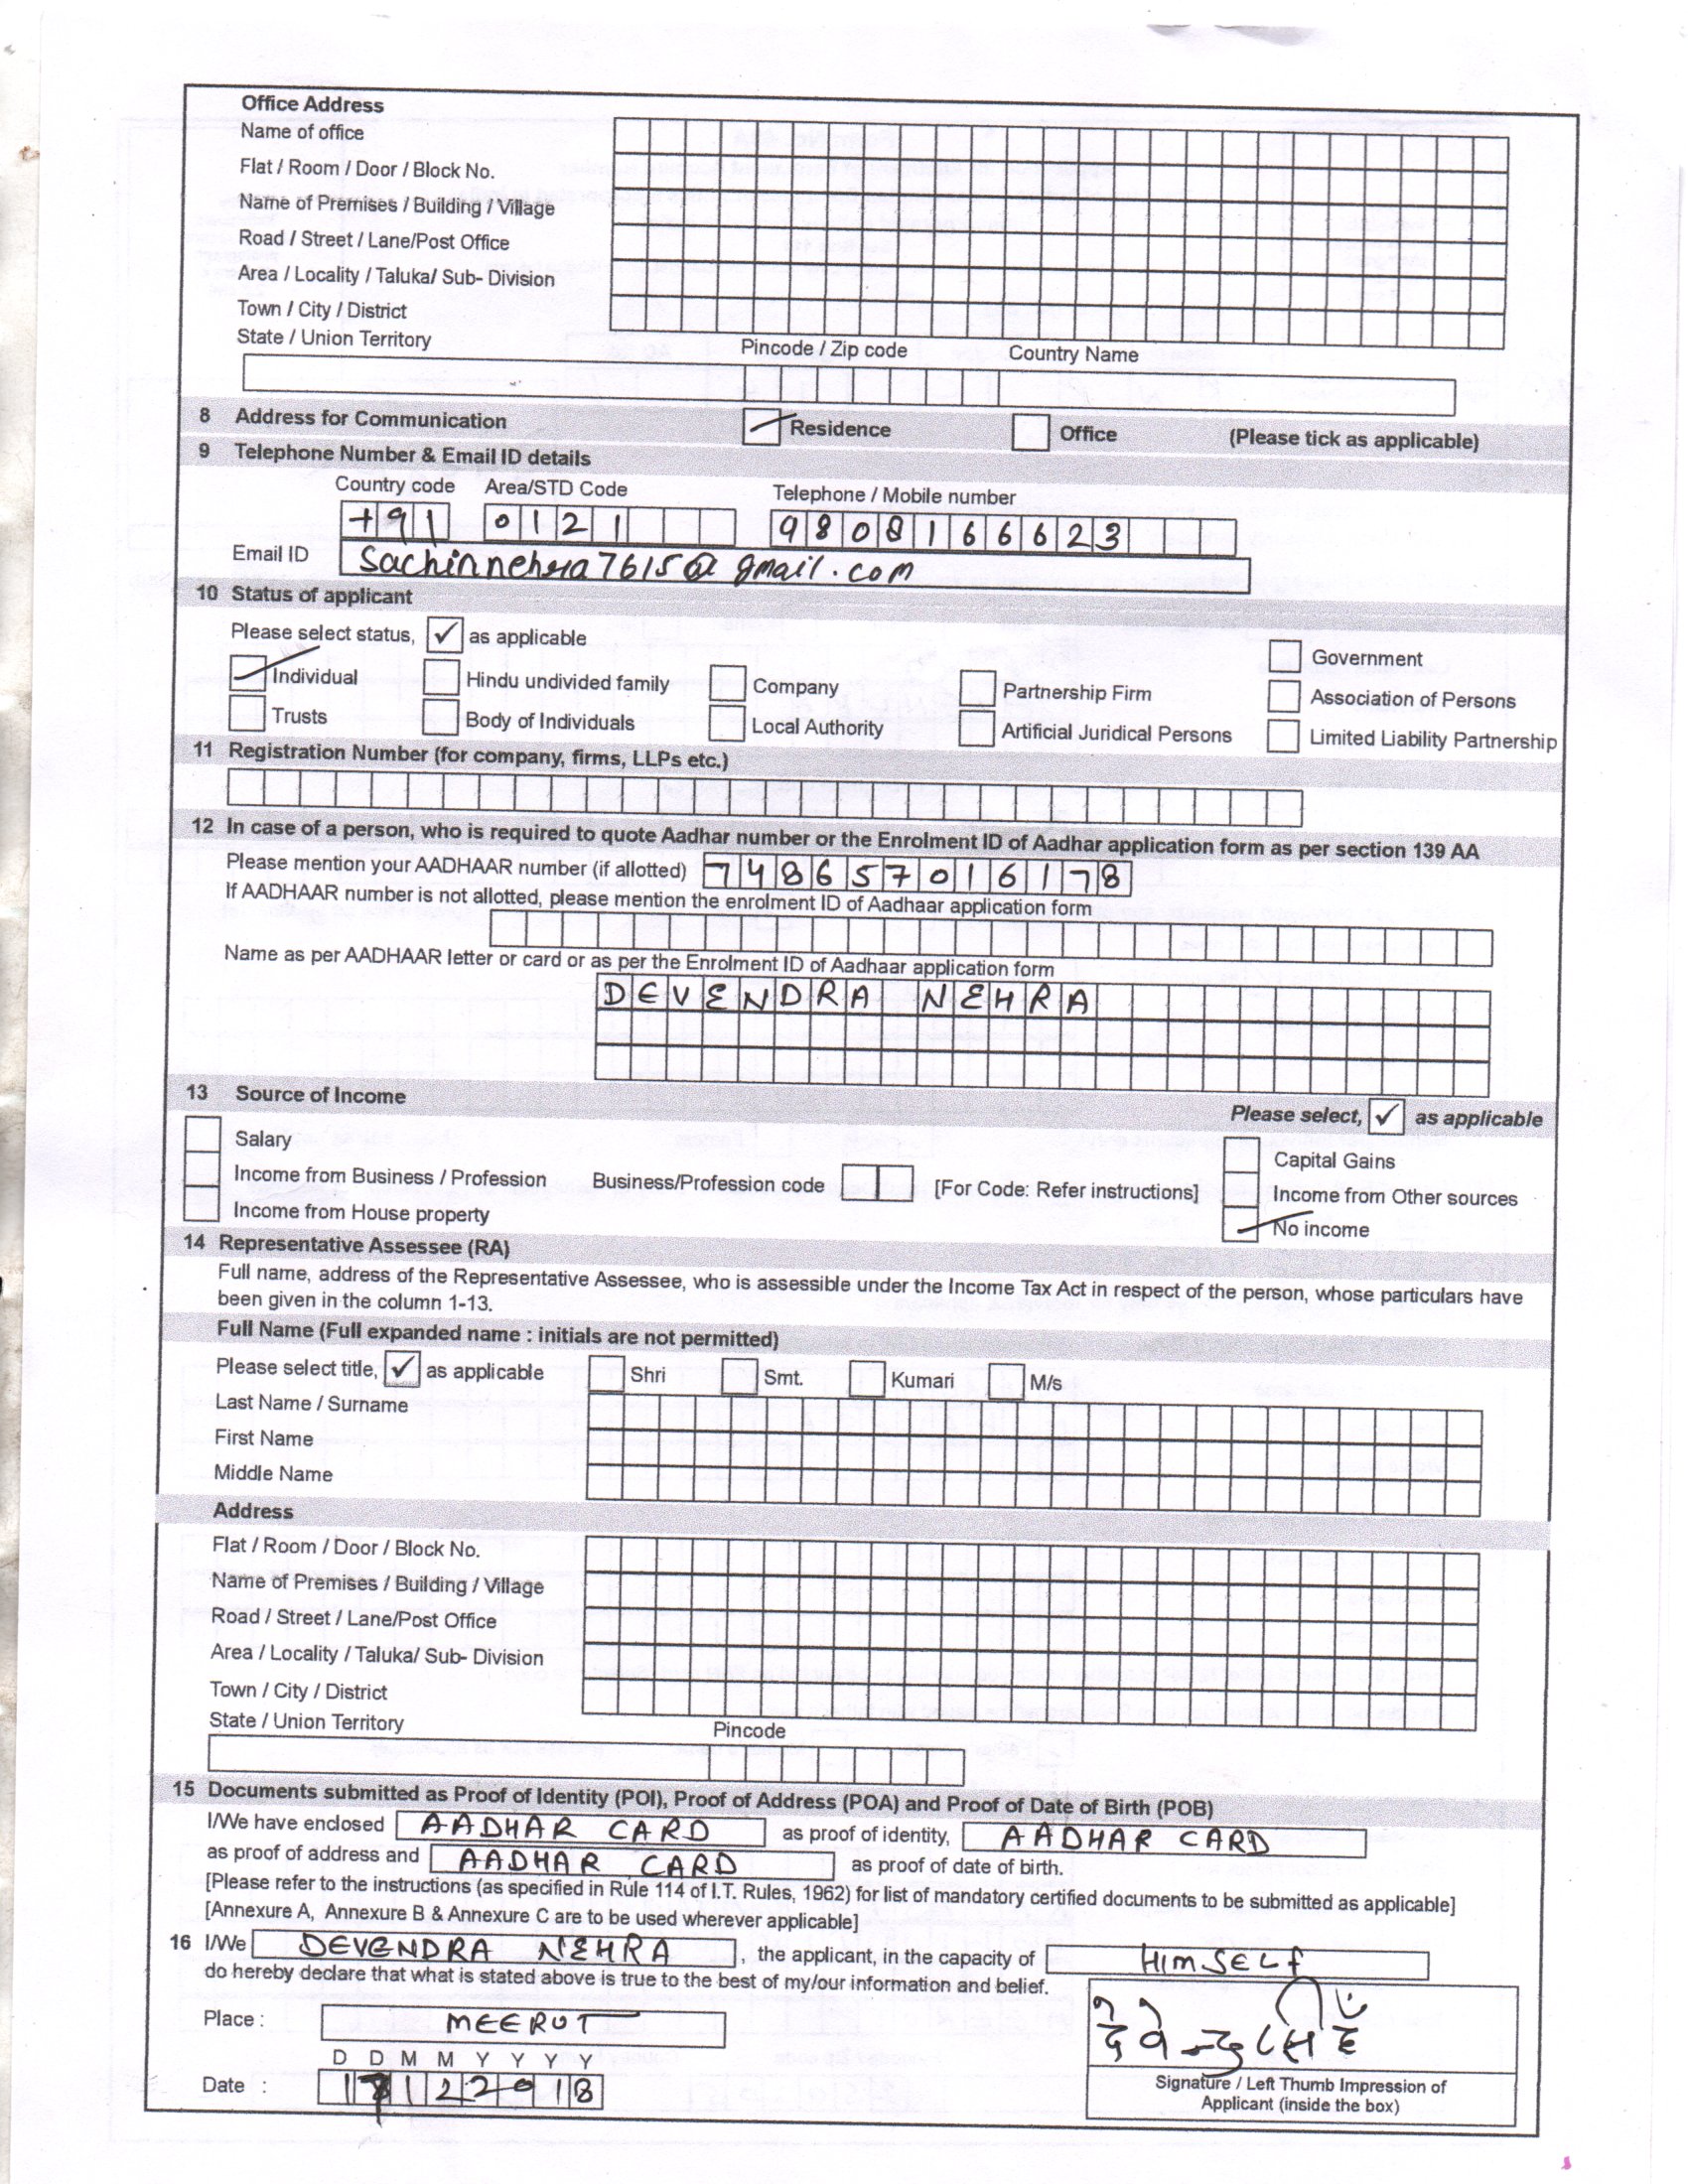 Office Address
Name of office
Flat / Room / Door / Block No.
Name of Premises / Building / Village
Road / Street / Lane/Post Office
Area / Locality / Taluka/ Sub- Division
Town / City / District
State / Union Territory Pincode / Zip code Country Name
8 Address for Communication Residence Office (Please tick as applicable)
9 Telephone Number & Email ID details
Country code Area/STD Code Telephone / Mobile number
+91 0121 9808166623
Email ID sachinnehra7615@gmail.com
10 Status of applicant
Please select status, ✓ as applicable
Government
Individual Hindu undivided family Company Partnership Firm Association of Persons
Trusts Body of Individuals Local Authority Artificial Juridical Persons Limited Liability Partnership
11 Registration Number (for company, firms, LLPs etc.)
12 In case of a person, who is required to quote Aadhar number or the Enrolment ID of Aadhar application form as per section 139 AA
Please mention your AADHAAR number (if allotted) 748657016178
If AADHAAR number is not allotted, please mention the enrolment ID of Aadhaar application form
Name as per AADHAAR letter or card or as per the Enrolment ID of Aadhaar application form
DEVENDRA NEHRA
13 Source of Income Please select, ✓ as applicable
Salary Capital Gains
Income from Business / Profession Business/Profession code [For Code: Refer instructions] Income from Other sources
Income from House property No income
14 Representative Assessee (RA)
Full name, address of the Representative Assessee, who is assessible under the Income Tax Act in respect of the person, whose particulars have
been given in the column 1-13.
Full Name (Full expanded name : initials are not permitted)
Please select title, ✓ as applicable Shri Smt. Kumari M/s
Last Name / Surname
First Name
Middle Name
Address
Flat / Room / Door / Block No.
Name of Premises / Building / Village
Road / Street / Lane/Post Office
Area / Locality / Taluka/ Sub- Division
Town / City / District
State / Union Territory Pincode
15 Documents submitted as Proof of Identity (POI), Proof of Address (POA) and Proof of Date of Birth (POB)
I/We have enclosed AADHAR CARD as proof of identity, AADHAR CARD
as proof of address and AADHAR CARD as proof of date of birth.
[Please refer to the instructions (as specified in Rule 114 of I.T. Rules, 1962) for list of mandatory certified documents to be submitted as applicable]
[Annexure A, Annexure B & Annexure C are to be used wherever applicable]
16 I/We DEVENDRA NEHRA, the applicant, in the capacity of HIMSELF
do hereby declare that what is stated above is true to the best of my/our information and belief.
Place : MEERUT
D D M M Y Y Y Y
Date : 1 122018
Signature / Left Thumb Impression of
Applicant (inside the box)